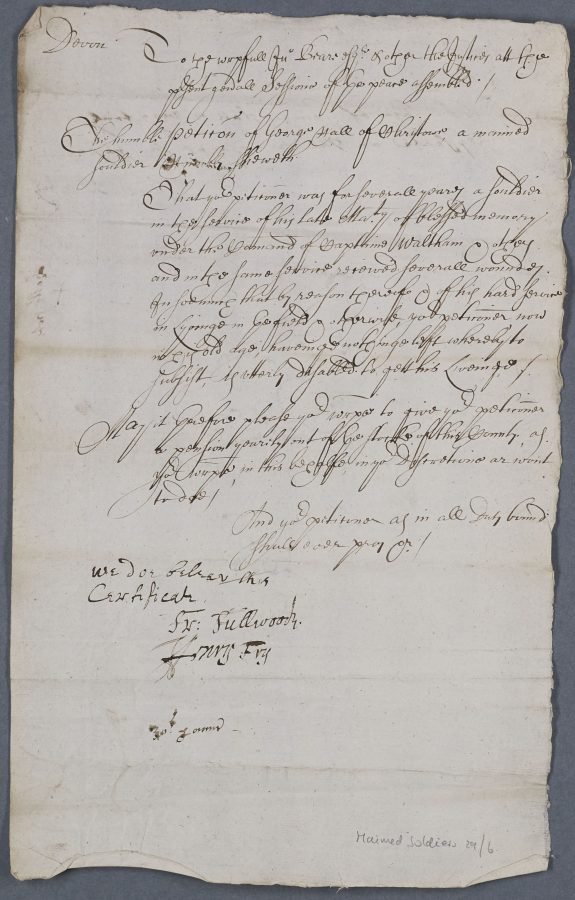 Devon
To the worpfull Jn° Beare esqr & other the Justices att the
psent genall Sessions of the peace assembled /
The humble peticon of George Hall of a maimed
souldier Humbly sheweth
That yor petitioner was for severall yeares a souldier
in the service of his late Maty of blessed memory
under the Comand of Captaine Waltham & others
and in the same service receaved severall woundes
Insoemuch that by reason thereof & of his hard service
in lyinge in the field & otherwise, yor petitioner now
in his old age haveinge nothinge left whereby to
subsist is utterly disabled to gett his Liveinge /
May it therefore please yor worpps to give yor petitioner
a pension yearly out of the stocke of this County as
yor worpps in this behalfe in yor Discretions ar wont
to doe /
And yor petitioner as in all Duty bound
shall ever pray &c /
we doe beleev this
Certificate
Fr: Fullwood.
Henry Fry
30s p ann
Maimed Soldiers 29/6